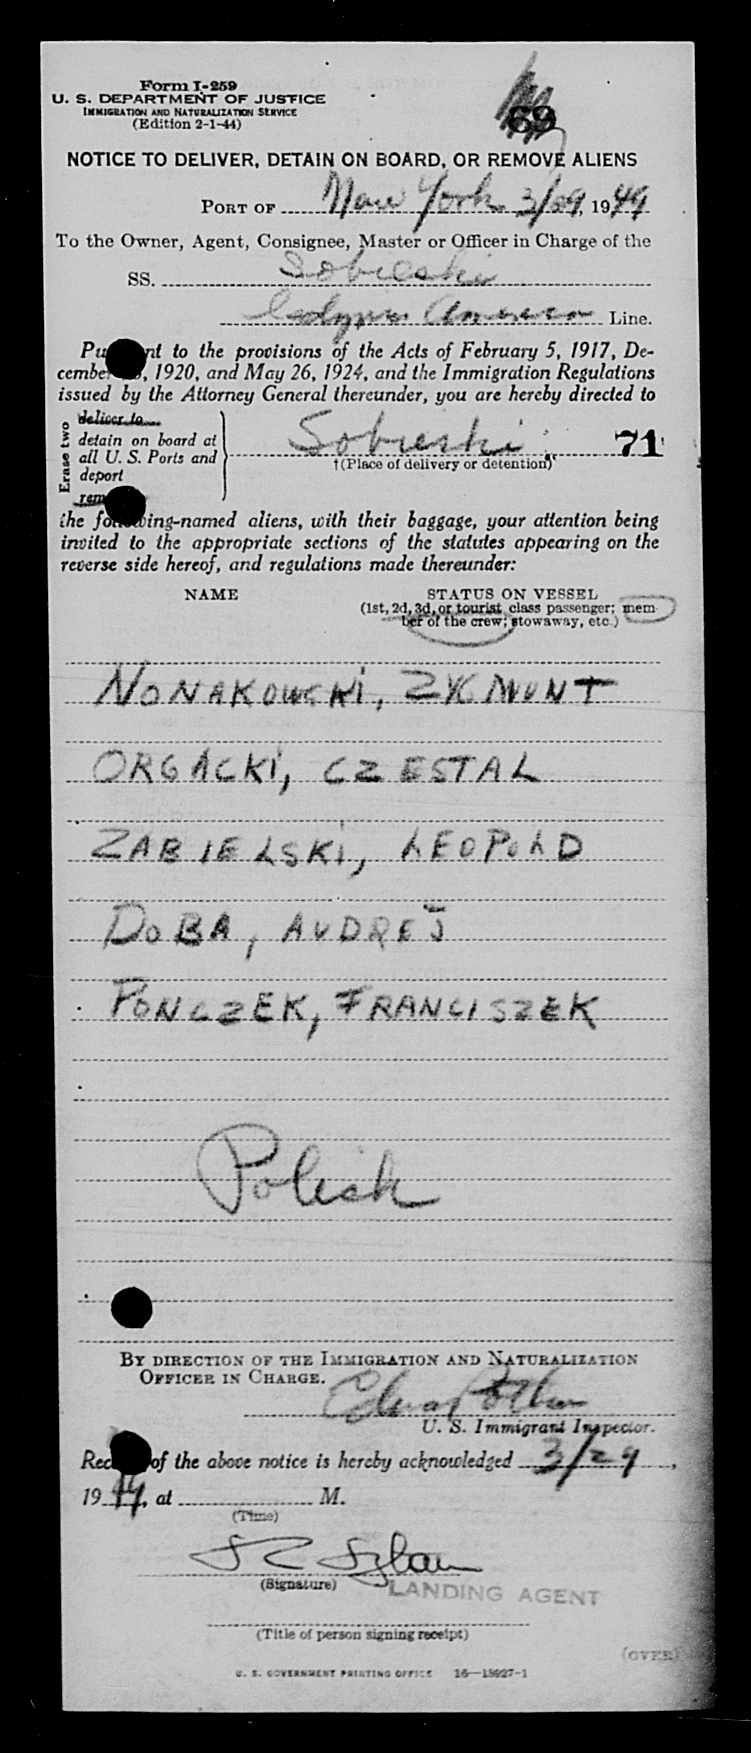 Form I-259
U. S. DEPARTMENT OF JUSTICE
IMMIGRATION AND NATURALIZATION SERVICE
(Edition 2-1-44)
69
NOTICE TO DELIVER, DETAIN ON BOARD, OR REMOVE ALIENS
PORT OF New York 3/29, 1949
To the Owner, Agent, Consignee, Master or Officer in Charge of the
SS. Sobieski
Gdynia America Line.
to the provisions of the Acts of February 5, 1917, De-
, 1920, and May 26, 1924, and the Immigration Regulations
issued by the Attorney General thereunder, you are hereby directed to
Erase two
deliver to
detain on board at
all U. S. Ports and
deport
Sobieski 71
†(Place of delivery or detention)
the named aliens, with their baggage, your attention being
invited to the appropriate sections of the statutes appearing on the
reverse side hereof, and regulations made thereunder:
NAME STATUS ON VESSEL
(1st, 2d, 3d, or tourist class passenger; mem-
ber of the crew; stowaway, etc.)
NONAKOWSKI, ZYGMUNT
ORGACKI, CZESTAL
ZABIELSKI, LEOPOLD
DOBA, AUDREJ
PONCZEK, FRANCISZEK
Polish
BY DIRECTION OF THE IMMIGRATION AND NATURALIZATION
OFFICER IN CHARGE.
U. S. Immigrant Inspector.
of the above notice is hereby acknowledged 3/29,
1949, at M.
(Time)
(Signature) LANDING AGENT
(Title of person signing receipt)
(OVER)
U. S. GOVERNMENT PRINTING OFFICE 16—18927-1